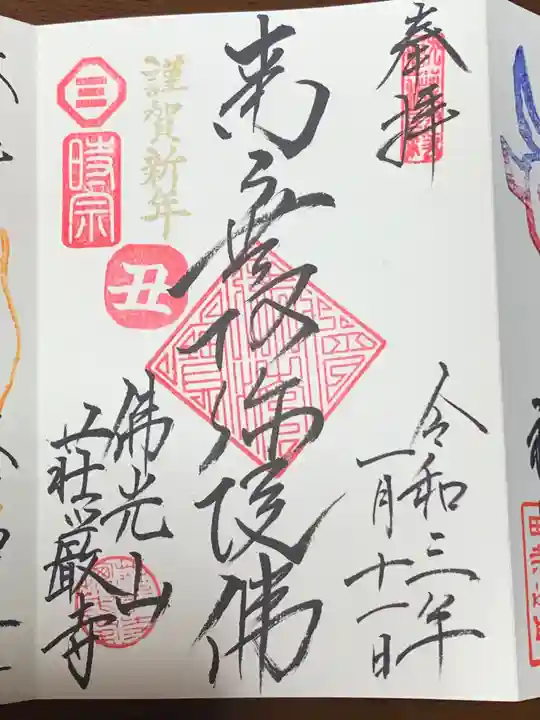 奉拝
令和三年
一月十一日
南無阿弥陀佛
謹賀新年
丑
三
時宗
佛光山
荘厳寺